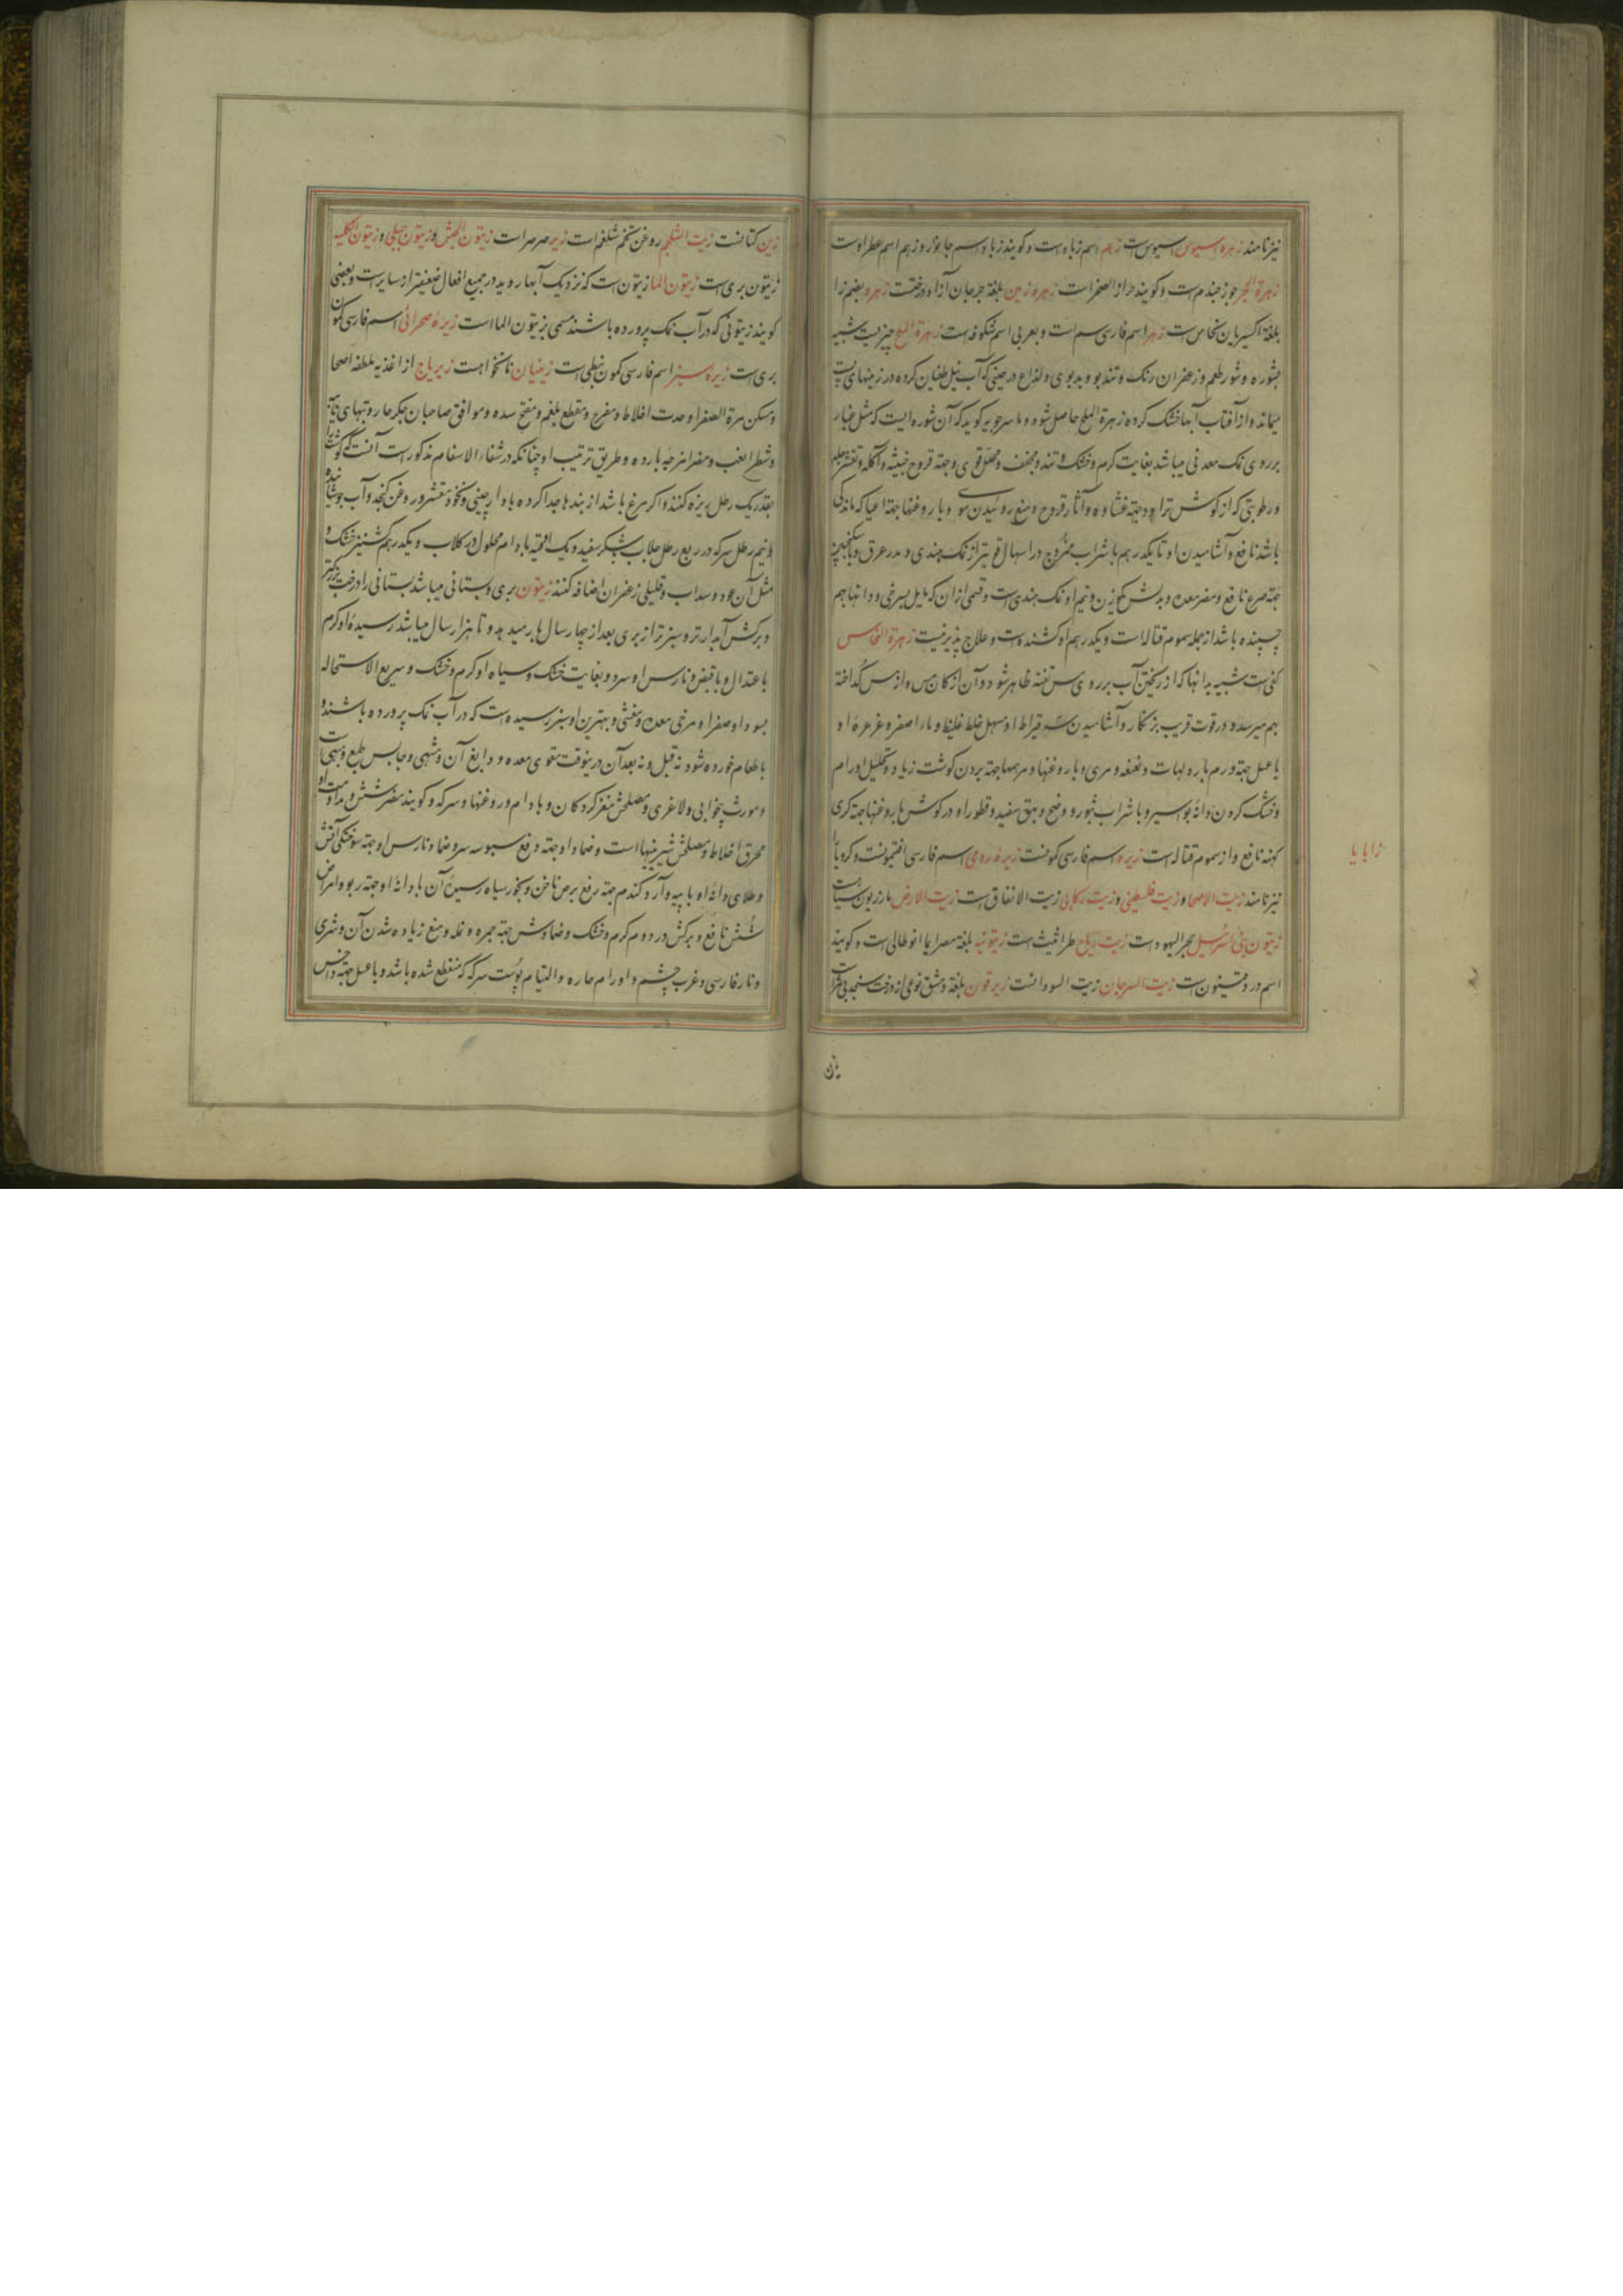 نیز نامند زهره اسیوس اسیوس است زهم اسم زباد است و کویند زباد اسم جانور و زهم اسم عطر اوست
زهرة الحجر جوز جندم است و کویند حزاز الصخر است زهره زمین بلغة جرجان آزاد درختست زهره بضم زا
بلغة اکسیریان نحاس است زهر اسم فارسی سم است و بعربی اسم شکوفه است زهرة الملح چیزیست شبیه
بشوره و شور طعم و زعفران رنک و تند بو و بدبوی و لذاع در حینی که آب نیل طغیان کرده در زمینهای پست
میماند و از آفتاب آنها خشک کرده زهرة الملح حاصل شود و ماسرجویه کوید که آن شوره ایست که مثل غبار
بر روی نمک معدنی میباشد بغایت کرم و خشک و تند و مجفف و محلل قوی و جهة قروح خبیثه و آکله و
و رطوبتی که از کوش تراود و جهة غشاوه و آثار قروح و منع روئیدن مو و با روغنها جهة اعیا که ماندکی
باشد نافع و آشامیدن او تا یکدرهم با شراب ممزوج در اسهال قویتر از نمک هندی و مدر عرق و با سکنجبین
جهة صرع نافع و مضر معده و بدلش بکوزن و نیم او نمک هندی است و قسمی ازان که مایل بسرخی و دانها بهم
چسبنده باشد از جمله سموم قتاله است و یکدرهم او کشنده است و علاج پذیر نیست زهرة النحاس
کفی است شبیه بدانها که از ریختن آب بر روی مس تفته ظاهر شود و آن از کان مس و از مس کداخته
بهم میرسد و در قوت قریب بزنکار و آشامیدن سه قیراط او مسهل خلط غلیظ و ماء اصفر و غرغرهٔ او
با عسل جهة ورم بارد لهات و نغنغه و مری و با روغنها و مرهمها جهة بردن کوشت زیاد و تحلیل اورام
و خشک کردن دانه بواسیر و با شراب بثور و وضح و بهق سفید و قطور او در کوش با روغنها جهة کری
کهنه نافع و از سموم قتاله است زیره اسم فارسی کمونست زیره رومی اسم فارسی افتیمونست و کرویا را
نیز نامند زیت الاصحا و زیت فلسطینی و زیت رکابی زیت الانفاق است زیت الارض مازریون سیاه است
زیتون بنی اسرئیل حجر الیهود است زیت ریاح طراثیث است زیتونیه بلغة مصر ایما انوطالی است و کویند
اسم درو قینون است زیت السرجان زیت السودانست زیرقون بلغة دمشق نوعی از درخت سنجد بی ثمر است
زابایا
زین
زین کتانست زیت الشلجم روغن تخم شلغم است زیر صرصر است زیتون الحبش و زیتون جبلی و زیتون الکلبه
زیتون بری است زیتون الما زیتون است که نزدیک آبها روید در جمیع افعال ضعیفتر از سایر است و بعضی
کویند زیتونی که در آب نمک پرورده باشند مسمی بزیتون الما است زیره صحرائی اسم فارسی کمون
بری است زیره سبز اسم فارسی کمون نبطی است زینیان نانخواه است زیرباج از اغذیه ملطفه اصحا
و مسکن مرة الصفرا و حدت اخلاط و مفرح و مقطع بلغم و مفتح سده و موافق صاحبان جکر حار و تبهای
و شطر الغب و مضر امزجه بارده و طریق ترتیب او چنانکه در شفاء الاسقام مذکور است آنست که کوشت را
بقدر یک رطل ریزه کنند و اکر مرغ باشد از بندها جدا کرده با دارچینی و نخود مقشر و روغن کنجد و آب جوشانیده
و نیم رطل سرکه در ربع رطل جلاب بشکر سفید و یک اوقیه بادام محلول در کلاب و یکدرهم کشنیز خشک و
مثل آن عود و سداب و قلیلی زعفران اضافه کنند زیتون بری و بستانی میباشد بستانی را درخت بزرکتر
و برکش آبدارتر و سبزتر از بری بعد از چهار سال بار میدهد و تا هزار سال میباشد رسیدهٔ او کرم
باعتدال و با قبض و نارس او سرد و بغایت خشک و سیاه او کرم و خشک و سریع الاستحاله
بسودا و صفرا و مرخی معده و مغثی و بهترین او سبز رسیده است که در آب نمک پرورده باشند و
با طعام خورده شود نه قبل و نه بعد آن درینوقت مقوی معده و دابغ آن و مشهی و حابس طبع و مبهی است
و مورث بیخوابی و لاغری و مصلحش مغز کردکان و بادام و روغنها و سرکه و کویند مضر شش و مداومت او
محرق اخلاط و مصلحش شیرینیها است و ضماد او جهة رفع سبوسه سر و ضماد نارس او جهة سوختکی آتش
و طلای دانهٔ او با پیه و آرد کندم جهة رفع برص ناخن و بخور سیاه رسیدهٔ آن با دانهٔ او جهة ربو و امراض
شش نافع و برکش در دوم کرم و خشک و ضمادش جهة جمره و نمله و منع زیاده شدن آن و شری
و نار فارسی و غرب چشم و اورام حاره و التیام پوست سر که منقطع شده باشد و با عسل جهة داحس